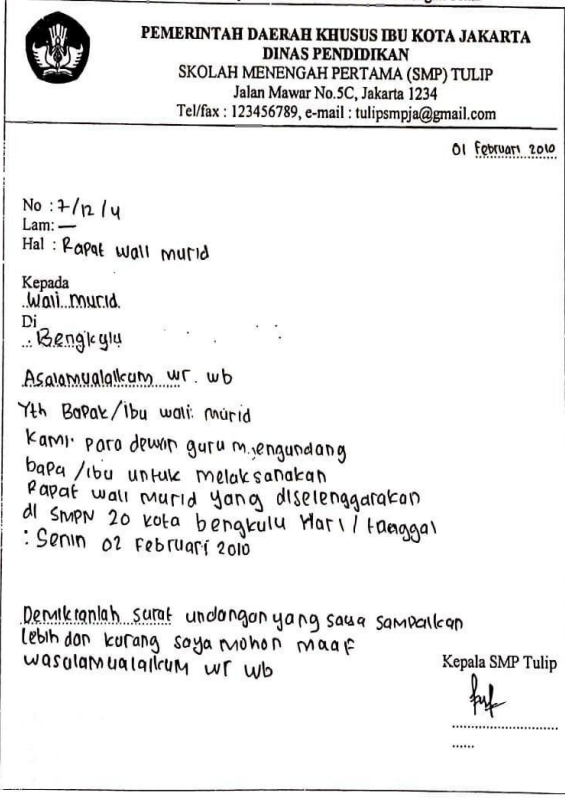 PEMERINTAH DAERAH KHUSUS IBU KOTA JAKARTA
DINAS PENDIDIKAN
SKOLAH MENENGAH PERTAMA (SMP) TULIP
Jalan Mawar No.5C, Jakarta 1234
Tel/fax : 123456789, e-mail : tulipsmpja@gmail.com
01 Februari 2010
No : 7/12/4
Lam: —
Hal : Rapat wali murid
Kepada
Wali murid
Di
Bengkulu
Asalamualaikum wr. wb
Yth Bapak/ibu wali murid
Kami para dewan guru mengundang
bapa/ibu untuk melaksanakan
Rapat wali murid yang diselenggarakan
di SMPN 20 kota bengkulu Hari/tanggal
: Senin 02 Februari 2010
Demikianlah surat undangan yang saya sampaikan
lebih dan kurang saya mohon maaf
wasalamualaikum wr wb
Kepala SMP Tulip